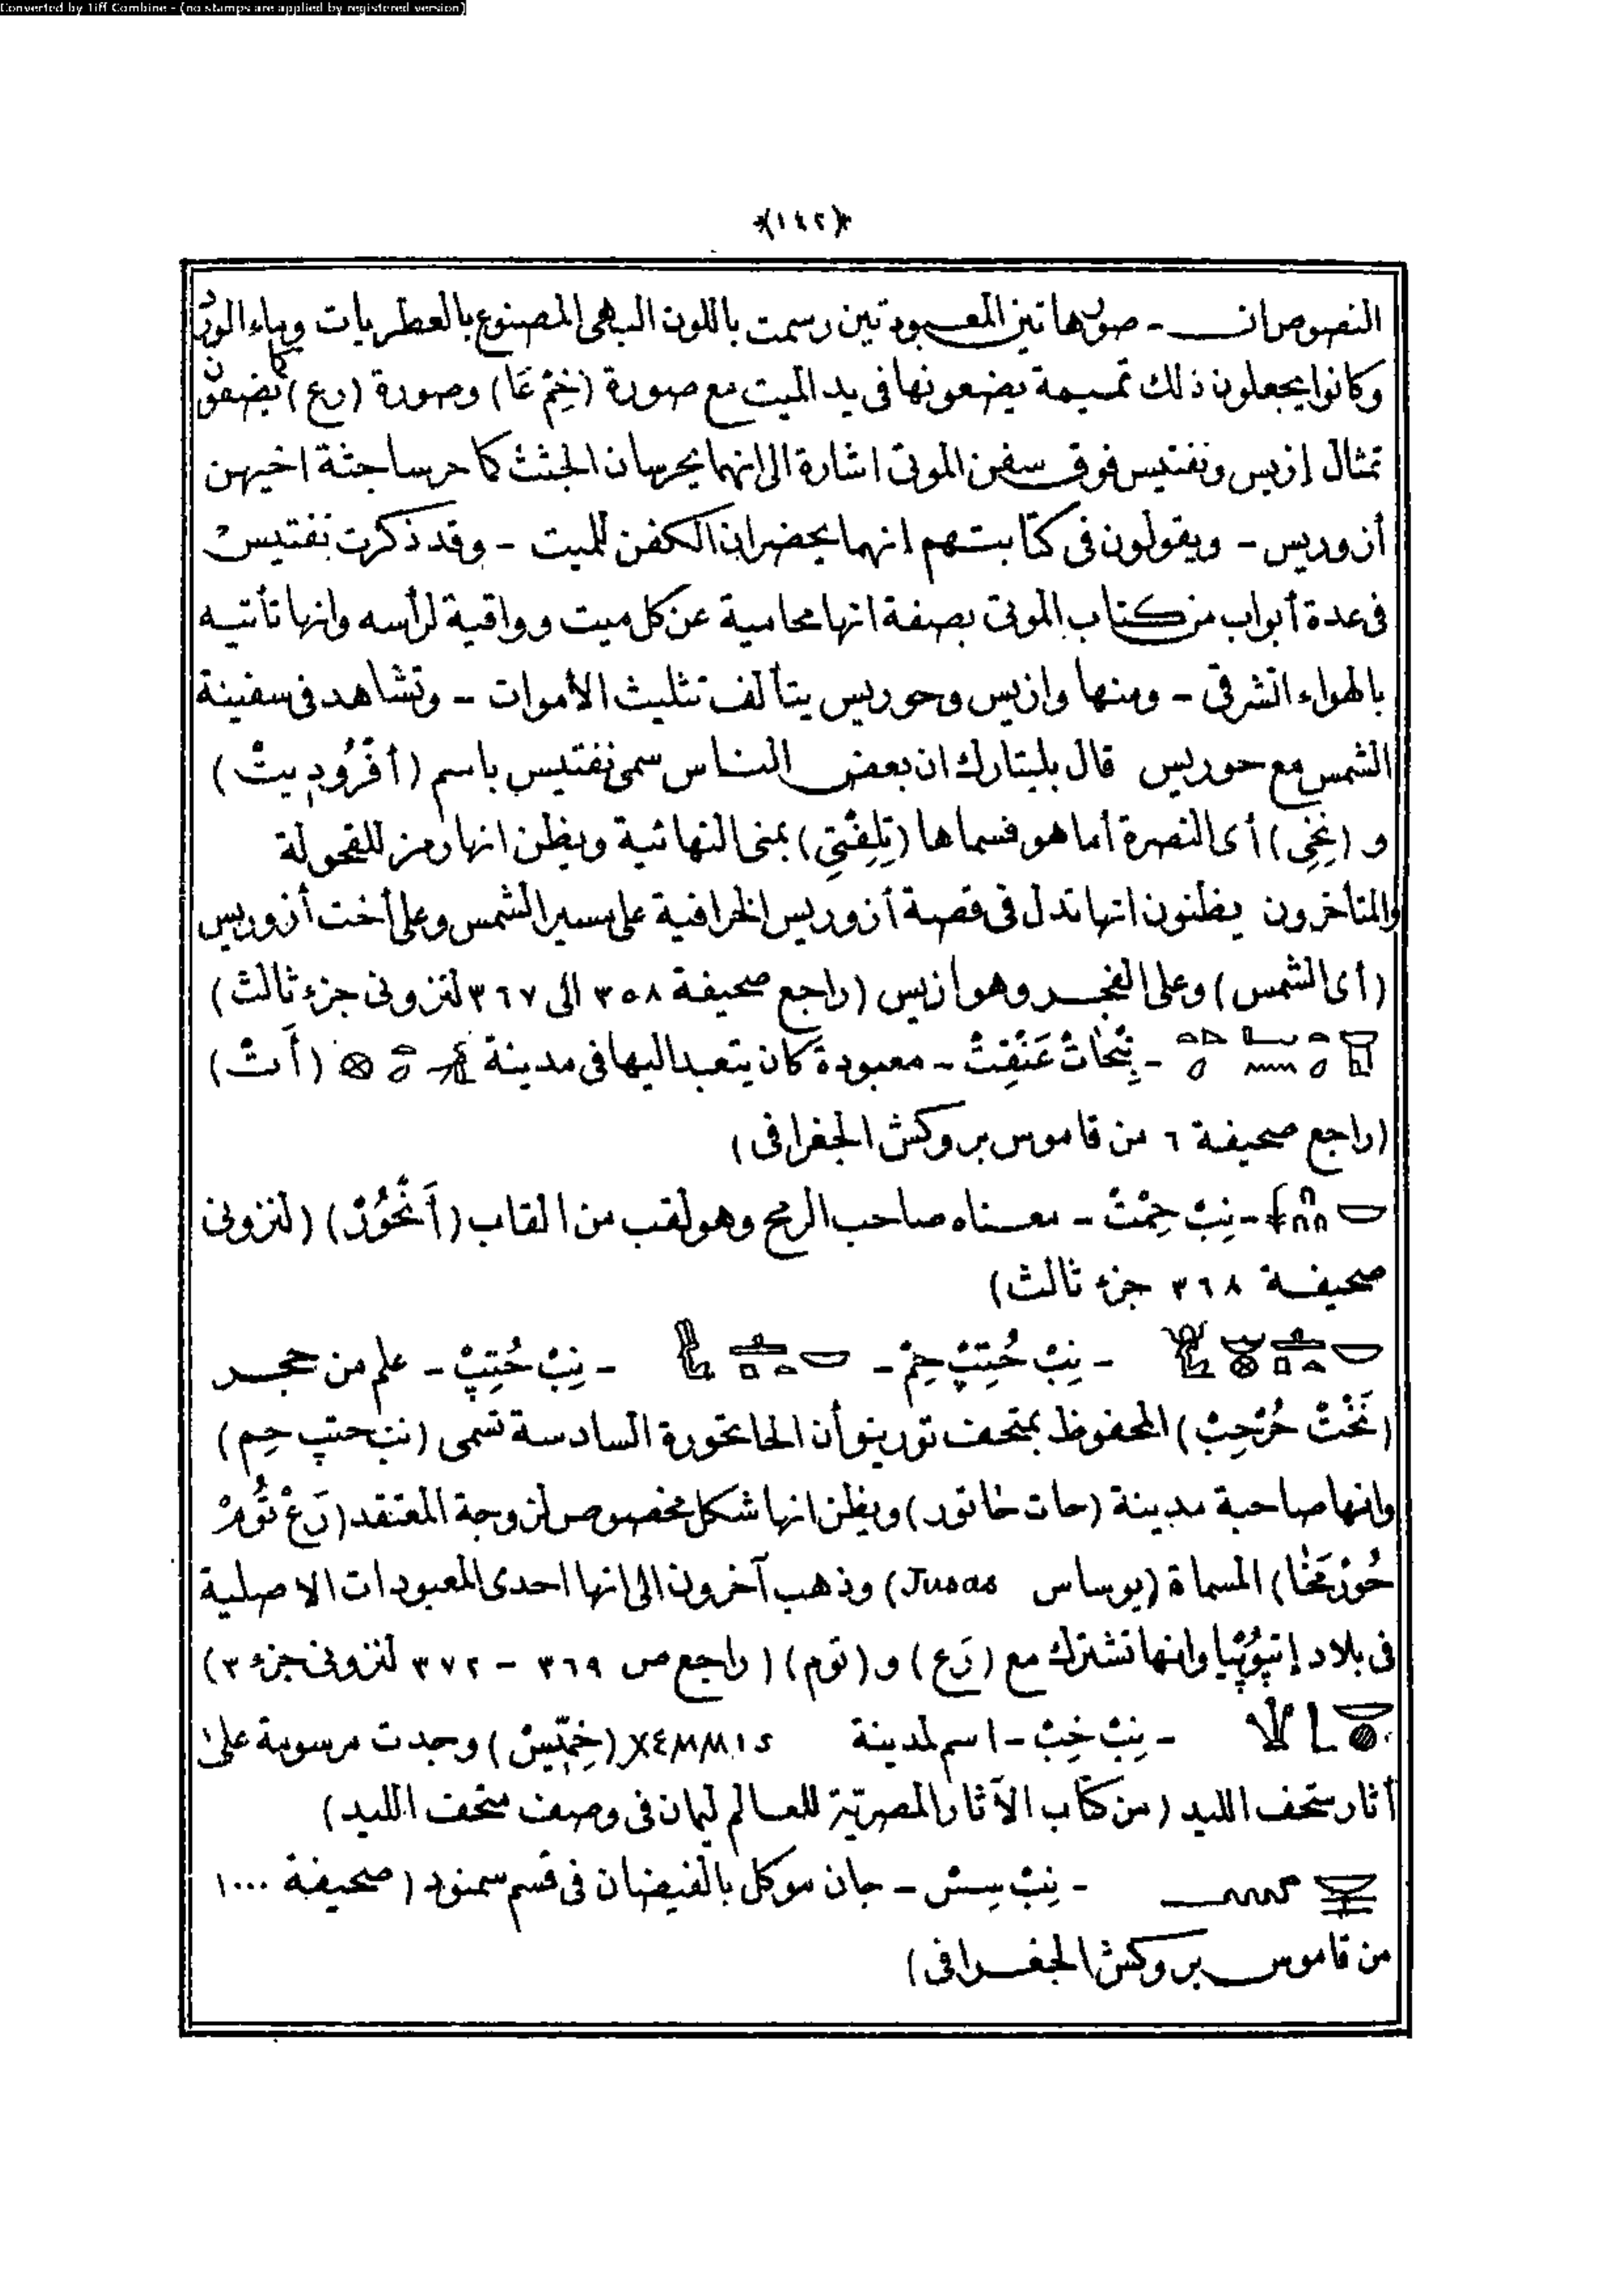 Converted by Tiff Combine - (no stamps are applied by registered version)
﴿١٤٢﴾
النصوص ان - صور هاتين المعبودتين رسمت باللون البهى المصنوع بالعطريات وبماء الورد
وكانوا يجعلون ذلك تميمة يضعونها فى يد الميت مع صورة (خِمْ عَا) وصورة (رع) كانوا يضعون
تمثال إزيس ونفتيس فوق سفن الموتى اشارة الى انهما يحرسان الجثث كما حرسا جثة اخيهن
أزوريس - ويقولون فى كتابتهم انهما يحضران الكفن للميت - وقد ذكرت نفتيس
فى عدة أبواب من كتاب الموتى بصفة انها محامية عن كل ميت وواقية لرأسه وانها تأتيه
بالهواء الشرقى - ومنها وازيس وحوريس يتألف تثليث الأموات - وتشاهد فى سفينة
الشمس مع حوريس قال بليتارك ان بعض الناس سمى نفتيس باسم (أفْرُودِيتْ)
و (نِخِى) أى النصرة أما هو فسماها (تِلِفْتِى) بمنى النهائية ويظن انها رمز للقحولة
والمتأخرون يظنون انها تدل فى قصة أزوريس الخرافية على مسير الشمس وعلى أخت أزوريس
(أى الشمس) وعلى الفجر وهو ازيس (راجع صحيفة ٣٥٨ الى ٣٦٧ لنزونى جزء ثالث)
- نِتْحَاتْ عَنْقِتْ - معبودة كان يتعبد اليها فى مدينة (أَتْ)
(راجع صحيفة ٦ من قاموس بروكش الجغرافى)
- نِبْ حِمْتْ - معناه صاحب الرمح وهو لقب من القاب (أَنْحُورْ) (لنزونى
صحيفة ٣٦٨ جزء ثالث)
- نِبْ حُتِبْ حِمْ - - نِبْ حُتِبْ - علم من حجر
(نَخْتْ حُرْحِبْ) المحفوظ بمتحف تورينو أن الحاتحورة السادسة تسمى (نب حتپ حم)
وانها صاحبة مدينة (حات خاتور) ويظن انها شكل مخصوص لزوجة المعتقد (رَعْ تُومْ
حُورْمَخُا) المسماة (يوساس Jusas) وذهب آخرون الى انها احدى المعبودات الاصلية
فى بلاد إتيُوپْيا وانها تشترك مع (رَع) و (توم) (راجع ص ٣٦٩ - ٣٧٢ لنزونى جزء ٣)
- نِبْ خِبْ - اسم لمدينة ΧΕΜΜΙS (خِمِّيسْ) وجدت مرسومة على
أثار متحف الليد (من كتاب الآثار المصريّة للعالم ليمان فى وصف متحف الليد)
- نِبْ سِسْ - جان موكل بالفيضان فى قسم سمنود (صحيفة ١٠٠٠
من قاموس بروكش الجغرافى)